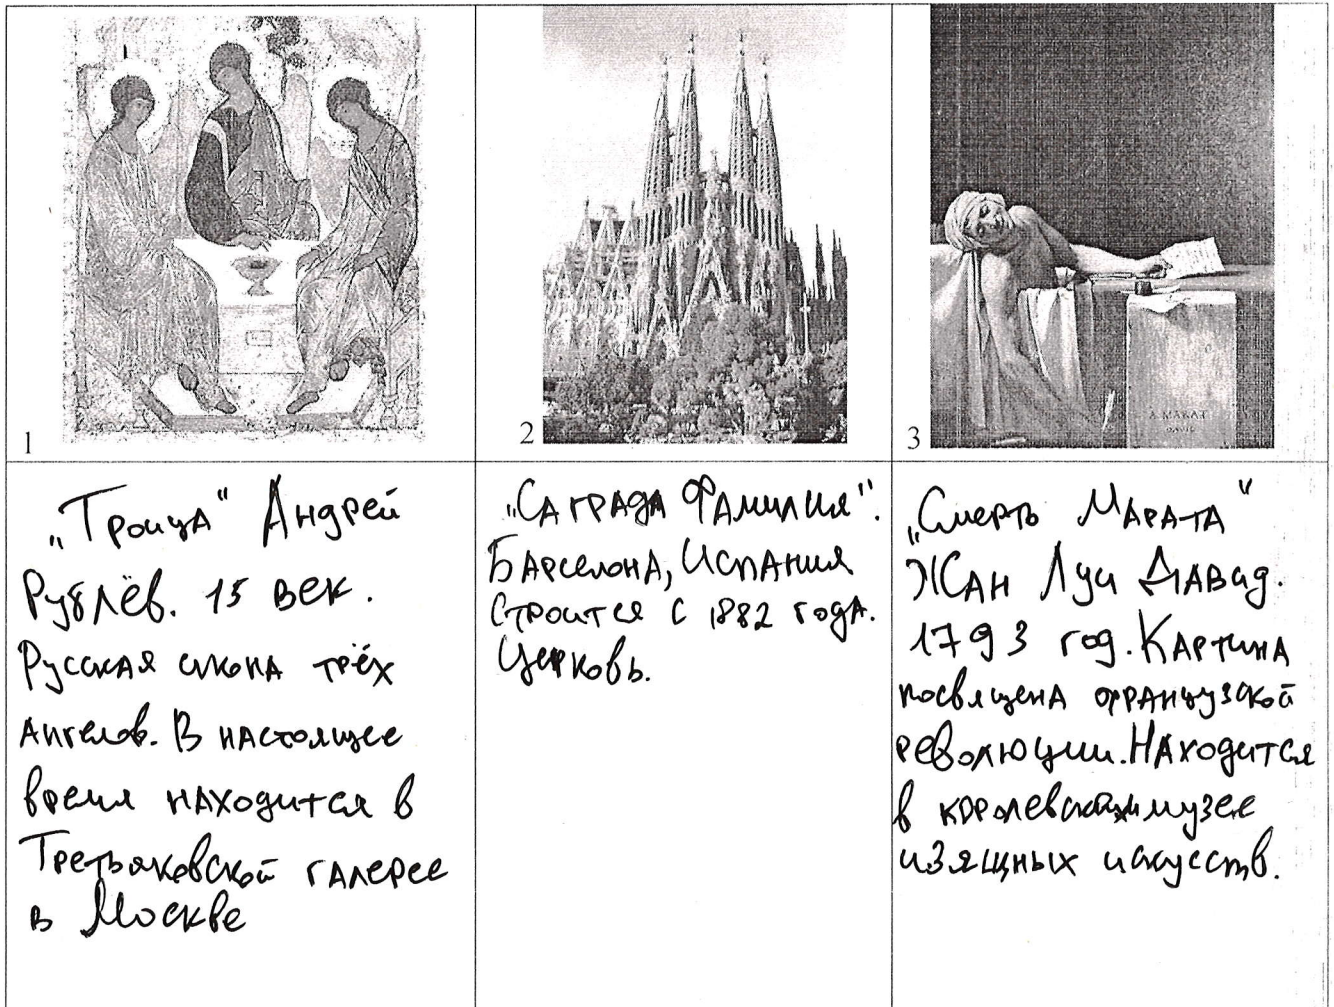 1
„Троица“ Андрей
Рублёв. 15 век.
Русская икона трёх
Ангелов. В настоящее
время находится в
Третьяковской галерее
в Москве
2
„Саграда Фамилия“.
Барселона, Испания
Строится с 1882 года.
Церковь.
3
A MARAT
DAVID
„Смерть Марата“
Жан Луи Давид.
1793 год. Картина
посвящена французской
революции. Находится
в королевском музее
изящных искусств.